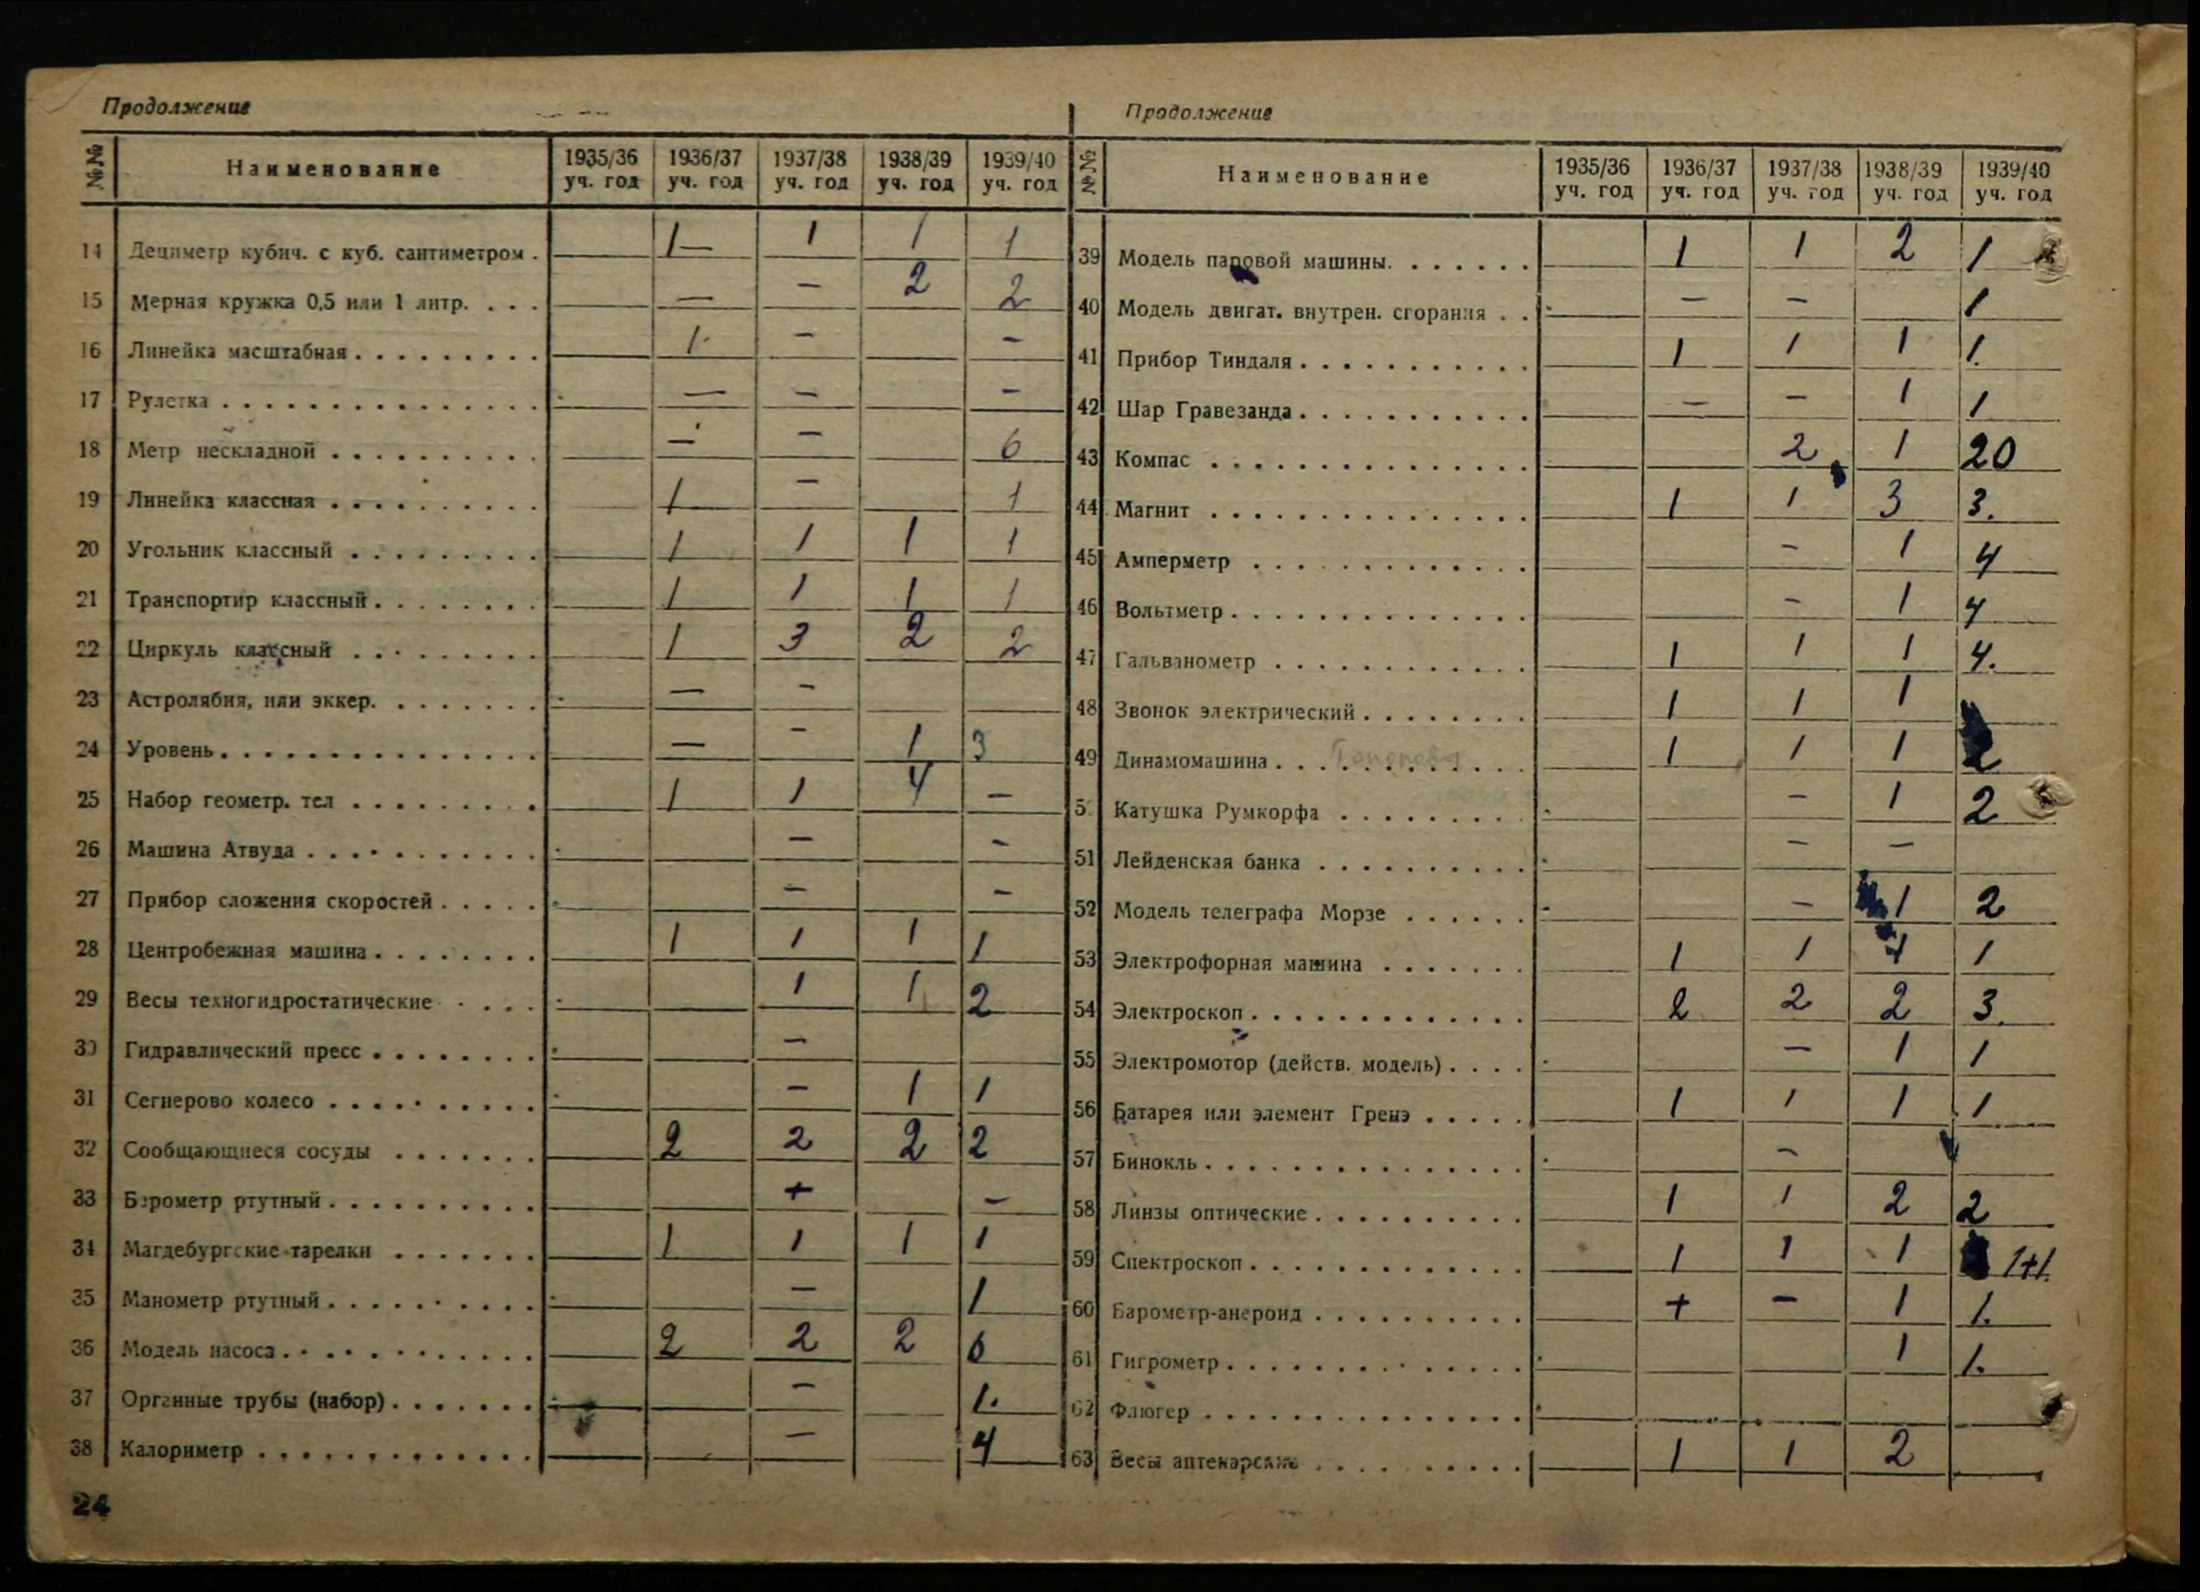 Продолжение
№№ Наименование 1935/36 уч. год 1936/37 уч. год 1937/38 уч. год 1938/39 уч. год 1939/40 уч. год
14 Дециметр кубич. с куб. сантиметром . 1— 1 1 1
15 Мерная кружка 0,5 или 1 литр. . . . — — 2 2
16 Линейка масштабная . . . . . . . . . 1. — —
17 Рулетка . . . . . . . . . . . . . . . — — —
18 Метр нескладной . . . . . . . . . . — — 6
19 Линейка классная . . . . . . . . . . 1 — 1
20 Угольник классный . . . . . . . . . 1 1 1 1
21 Транспортир классный . . . . . . . . 1 1 1 1
22 Циркуль классный . . . . . . . . . 1 3 2 2
23 Астролябия, или эккер. . . . . . . . — —
24 Уровень . . . . . . . . . . . . . . . — — 1 3
25 Набор геометр. тел . . . . . . . . . 1 1 4 —
26 Машина Атвуда . . . . . . . . . . . — —
27 Прибор сложения скоростей . . . . . — —
28 Центробежная машина . . . . . . . . 1 1 1 1
29 Весы техногидростатические . . . . . 1 1 2
30 Гидравлический пресс . . . . . . . . —
31 Сегнерово колесо . . . . . . . . . . — 1 1
32 Сообщающиеся сосуды . . . . . . . 2 2 2 2
33 Барометр ртутный . . . . . . . . . . + —
34 Магдебургские тарелки . . . . . . . 1 1 1 1
35 Манометр ртутный . . . . . . . . . . — 1
36 Модель насоса . . . . . . . . . . . . 2 2 2 6
37 Органные трубы (набор) . . . . . . . — 1.
38 Калориметр . . . . . . . . . . . . . — 4
24
Продолжение
№№ Наименование 1935/36 уч. год 1936/37 уч. год 1937/38 уч. год 1938/39 уч. год 1939/40 уч. год
39 Модель паровой машины. . . . . . . 1 1 2 1
40 Модель двигат. внутрен. сгорания . . — — 1
41 Прибор Тиндаля . . . . . . . . . . . 1 1 1 1.
42 Шар Гравезанда . . . . . . . . . . . — — 1 1
43 Компас . . . . . . . . . . . . . . . 2 1 20
44 Магнит . . . . . . . . . . . . . . . 1 1 3 3.
45 Амперметр . . . . . . . . . . . . . — 1 4
46 Вольтметр . . . . . . . . . . . . . . — 1 4
47 Гальванометр . . . . . . . . . . . . 1 1 1 4.
48 Звонок электрический . . . . . . . . 1 1 1
49 Динамомашина . . . . . . . . . . . . 1 1 1 2
5 Катушка Румкорфа . . . . . . . . — 1 2
51 Лейденская банка . . . . . . . . . . — —
52 Модель телеграфа Морзе . . . . . . — 1 2
53 Электрофорная машина . . . . . . . 1 1 1 1
54 Электроскоп . . . . . . . . . . . . . 2 2 2 3.
55 Электромотор (действ. модель) . . . . — 1 1
56 Батарея или элемент Гренэ . . . . . 1 1 1 1
57 Бинокль . . . . . . . . . . . . . . . —
58 Линзы оптические . . . . . . . . . . 1 1 2 2
59 Спектроскоп . . . . . . . . . . . . . 1 1 1 1+1.
60 Барометр-анероид . . . . . . . . . . + — 1 1.
61 Гигрометр . . . . . . . . . . . . . . 1 1.
62 Флюгер . . . . . . . . . . . . . . .
63 Весы аптекарские . . . . . . . . . . 1 1 2